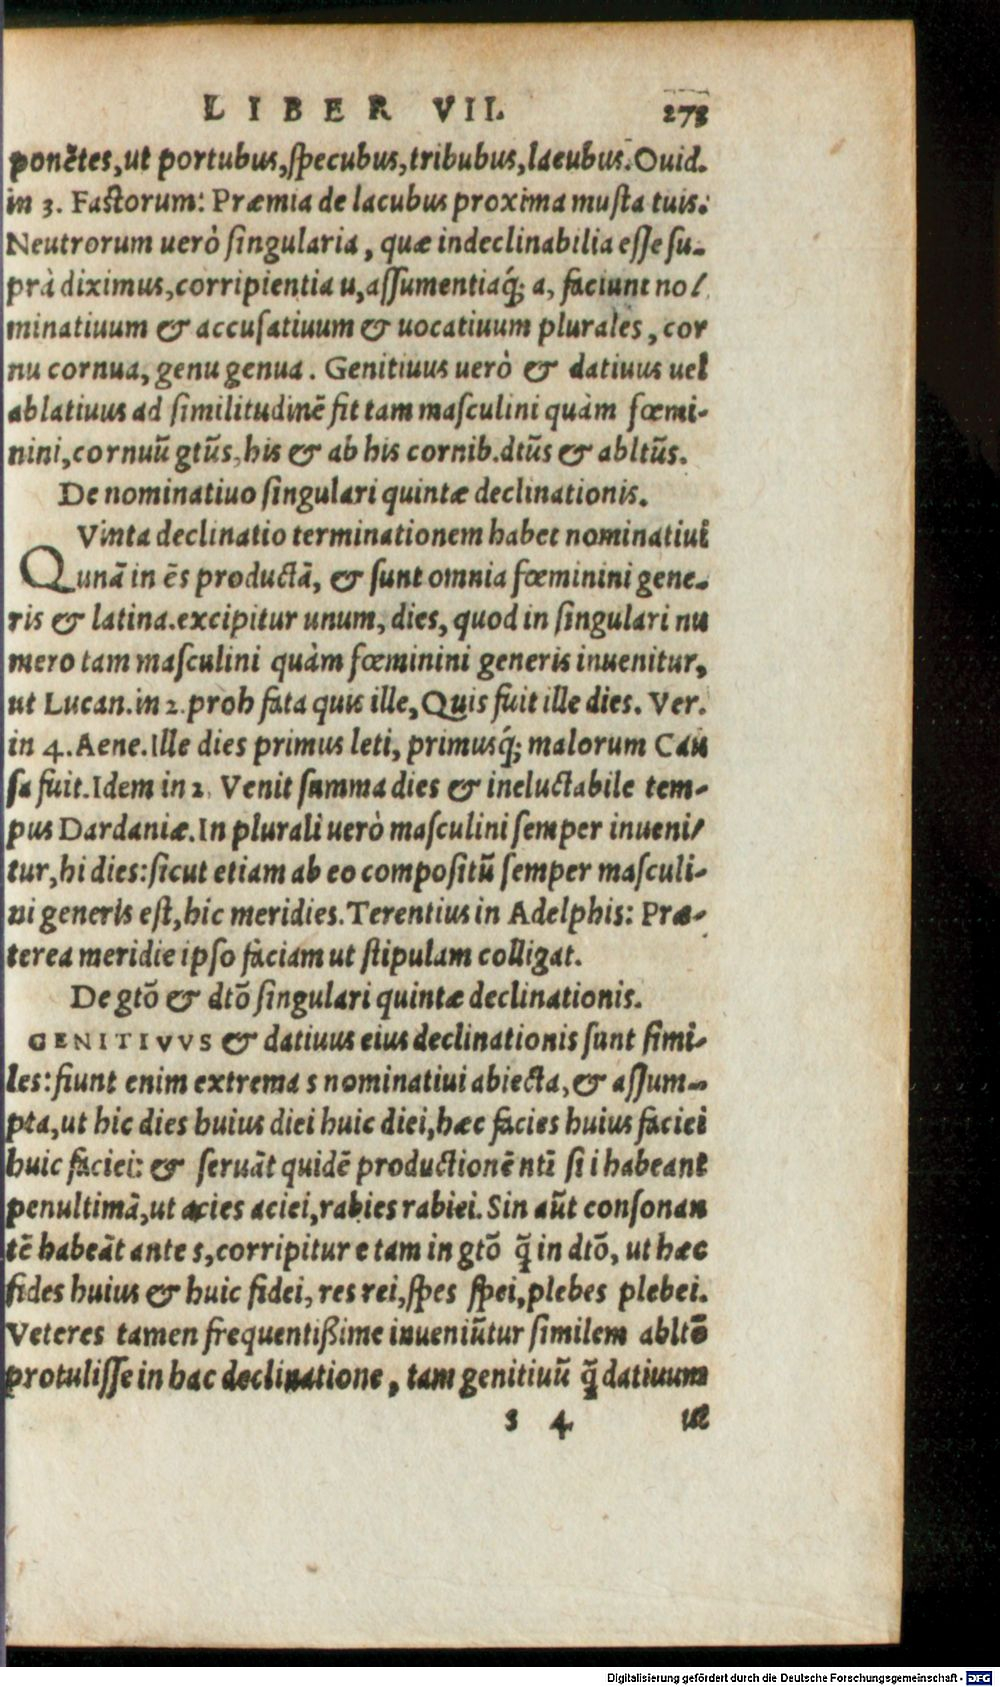 LIBER VII. 273
ponētes,ut portubus,specubus,tribubus,lacubus.Ouid.
in 3. Fastorum: Præmia de lacubus proxima musta tuis.
Neutrorum uerò singularia, quæ indeclinabilia esse su-
prà diximus,corripientia u,assumentiaq́; a, faciunt no/
minatiuum & accusatiuum & uocatiuum plurales, cor
nu cornua, genu genua. Genitiuus uerò & datiuus uel
ablatiuus ad similitudinē fit tam masculini quàm fœmi-
nini,cornuū gtūs,his & ab his cornib.dtūs & abltūs.
De nominatiuo singulari quintæ declinationis.
QVinta declinatio terminationem habet nominatiui
unā in ēs productā, & sunt omnia fœminini gene-
ris & latina.excipitur unum, dies, quod in singulari nu
mero tam masculini quàm fœminini generis inuenitur,
ut Lucan.in 2.proh fata quis ille, Quis fuit ille dies. Ver.
in 4.Aene.Ille dies primus leti, primusq́; malorum Cau
sa fuit.Idem in 2. Venit summa dies & ineluctabile tem-
pus Dardaniæ.In plurali uerò masculini semper inueni/
tur,hi dies:sicut etiam ab eo compositū semper masculi-
ni generis est,hic meridies.Terentius in Adelphis: Præ-
terea meridie ipso faciam ut stipulam colligat.
De gtō & dtō singulari quintæ declinationis.
GENITIVVS & datiuus eius declinationis sunt simi-
les:fiunt enim extrema s nominatiui abiecta,& assum-
pta,ut hic dies huius diei huic diei,hæc facies huius faciei
huic faciei: & seruāt quidē productionē ntī si i habeant
penultimā,ut acies aciei,rabies rabiei.Sin aūt consonan
tē habeāt ante s,corripitur e tam in gtō q̄ in dtō, ut hæc
fides huius & huic fidei, res rei,spes spei,plebes plebei.
Veteres tamen frequentißime inueniūtur similem abltō
protulisse in hac declinatione, tam genitiuū q̄ datiuum
s 4 ut
Digitalisierung gefördert durch die Deutsche Forschungsgemeinschaft - DFG